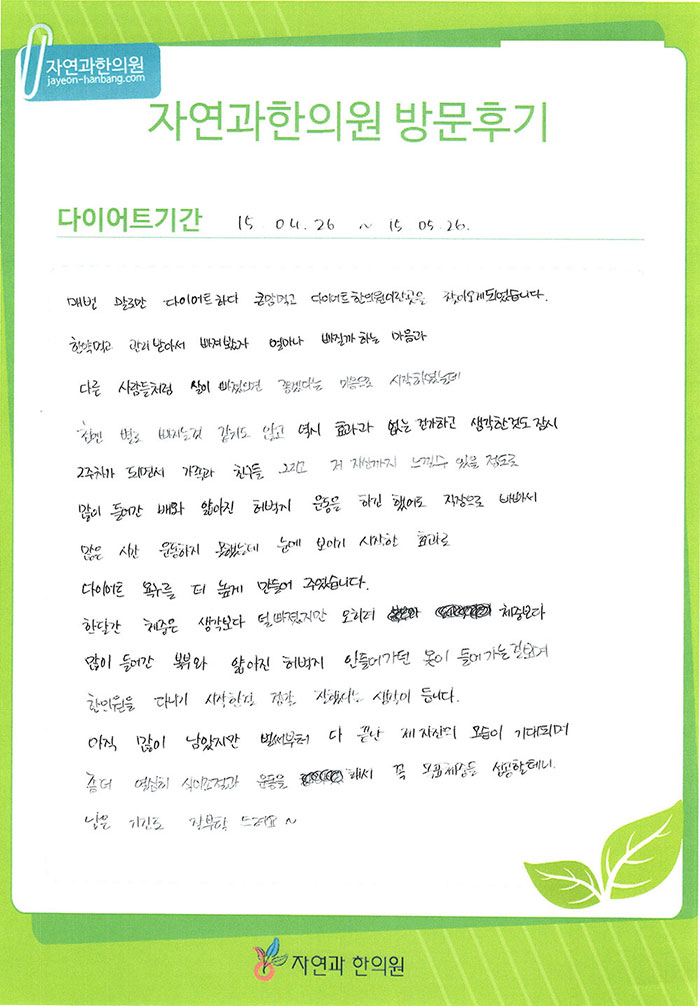 자연과한의원
jayeon-hanbang.com
자연과한의원 방문후기
다이어트기간 15. 04. 26 ~ 15. 05. 26.
매번 말로만 다이어트하다 큰맘먹고 다이어트한의원이란곳을 찾아오게되었습니다.
한약먹고 관리 받아서 빠져봤자 얼마나 빠질까 하는 마음과
다른 사람들처럼 살이 빠졌으면 좋겠다는 마음으로 시작하였는데
첨엔 별로 빠지는것 같지도 않고 역시 효과과 없는건가하고 생각한것도 잠시
2주차가 되면서 가족과 친구들 그리고 저 자신까지 느낄수 있을 정도로
많이 들어간 배와 얇아진 허벅지 운동을 하긴 했어도 직장으로 바빠서
많은 시간 운동하지 못했는데 눈에 보이기 시작한 효과로
다이어트 욕구를 더 높게 만들어 주었습니다.
한달간 체중은 생각보다 덜빠졌지만 오히려 체중보다
많이 들어간 복부와 얇아진 허벅지 안들어가던 옷이 들어가는걸보며
한의원을 다니기 시작한걸 정말 잘했다는 생각이 듭니다.
아직 많이 남았지만 벌써부터 다 끝난 제 자신의 모습이 기대되며
좀더 열심히 식이조절과 운동을 해서 꼭 목표체중을 성공할테니.
남은 기간도 잘부탁 드려요~
자연과 한의원